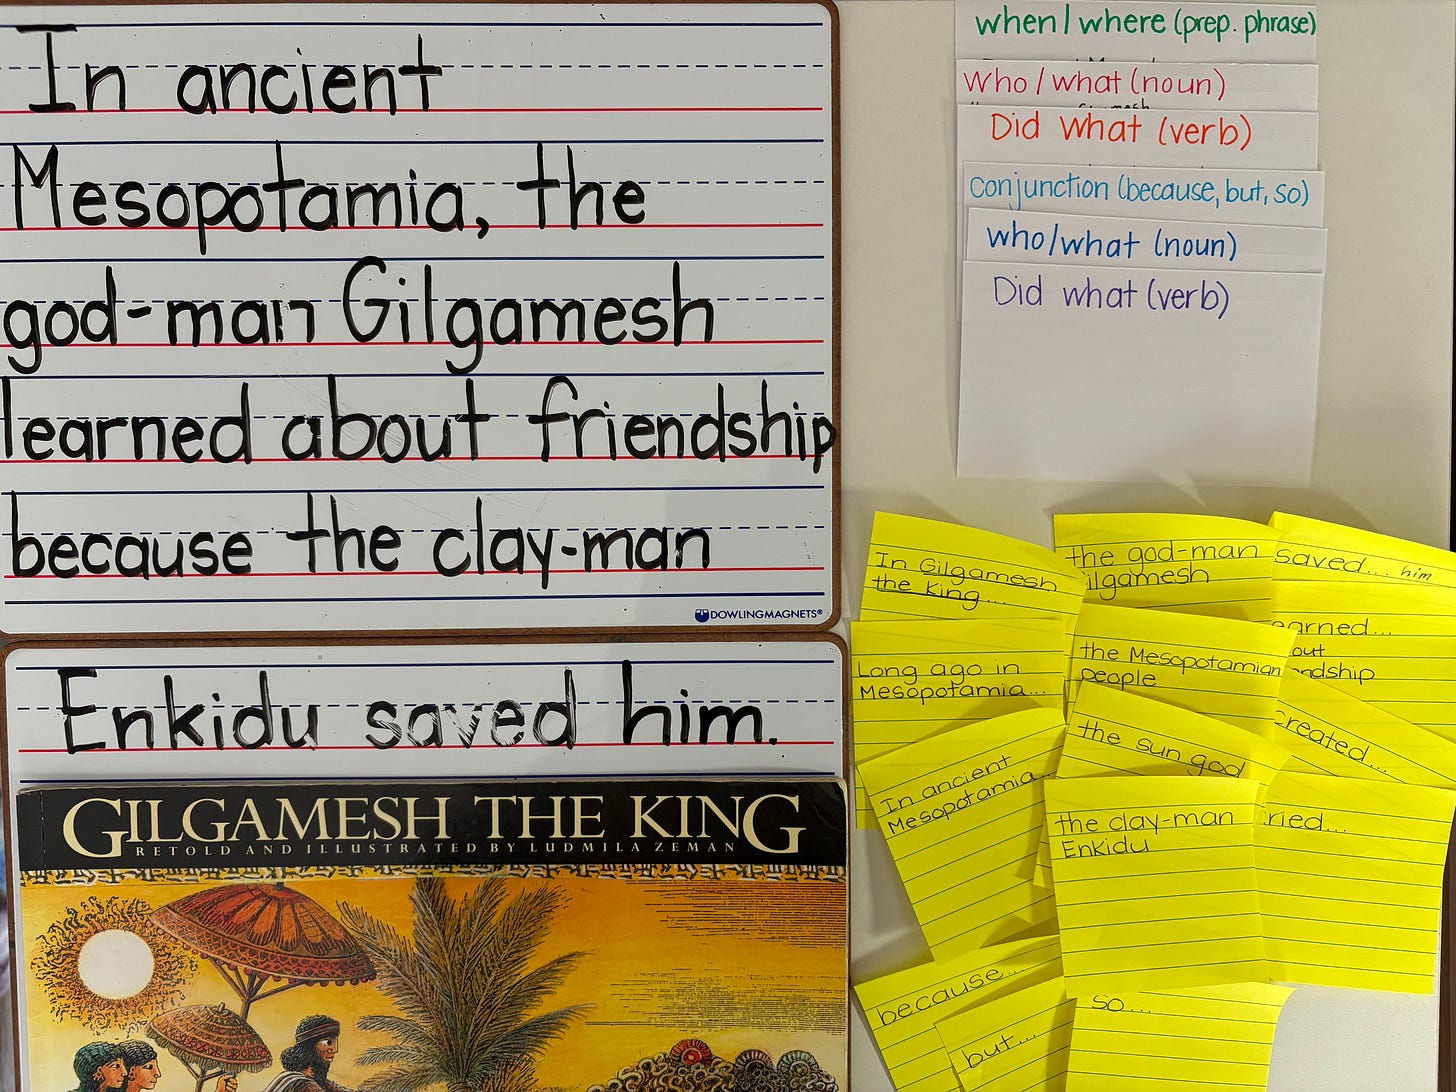 In ancient
Mesopotamia, the
god-man Gilgamesh
learned about friendship
because the clay-man
DOWLINGMAGNETS®
Enkidu saved him.
GILGAMESH THE KING
RETOLD AND ILLUSTRATED BY LUDMILA ZEMAN
when/where (prep. phrase)
Who/what (noun)
Did what (verb)
conjunction (because, but, so)
who/what (noun)
Did what (verb)
In Gilgamesh
the King...
Long ago in
Mesopotamia...
In ancient
Mesopotamia...
the god-man
ilgamesh
the Mesopotamian
people
the sun god
the clay-man
Enkidu
saved... him
earned...
out
ndship
created...
ried...
because...
but...
so...